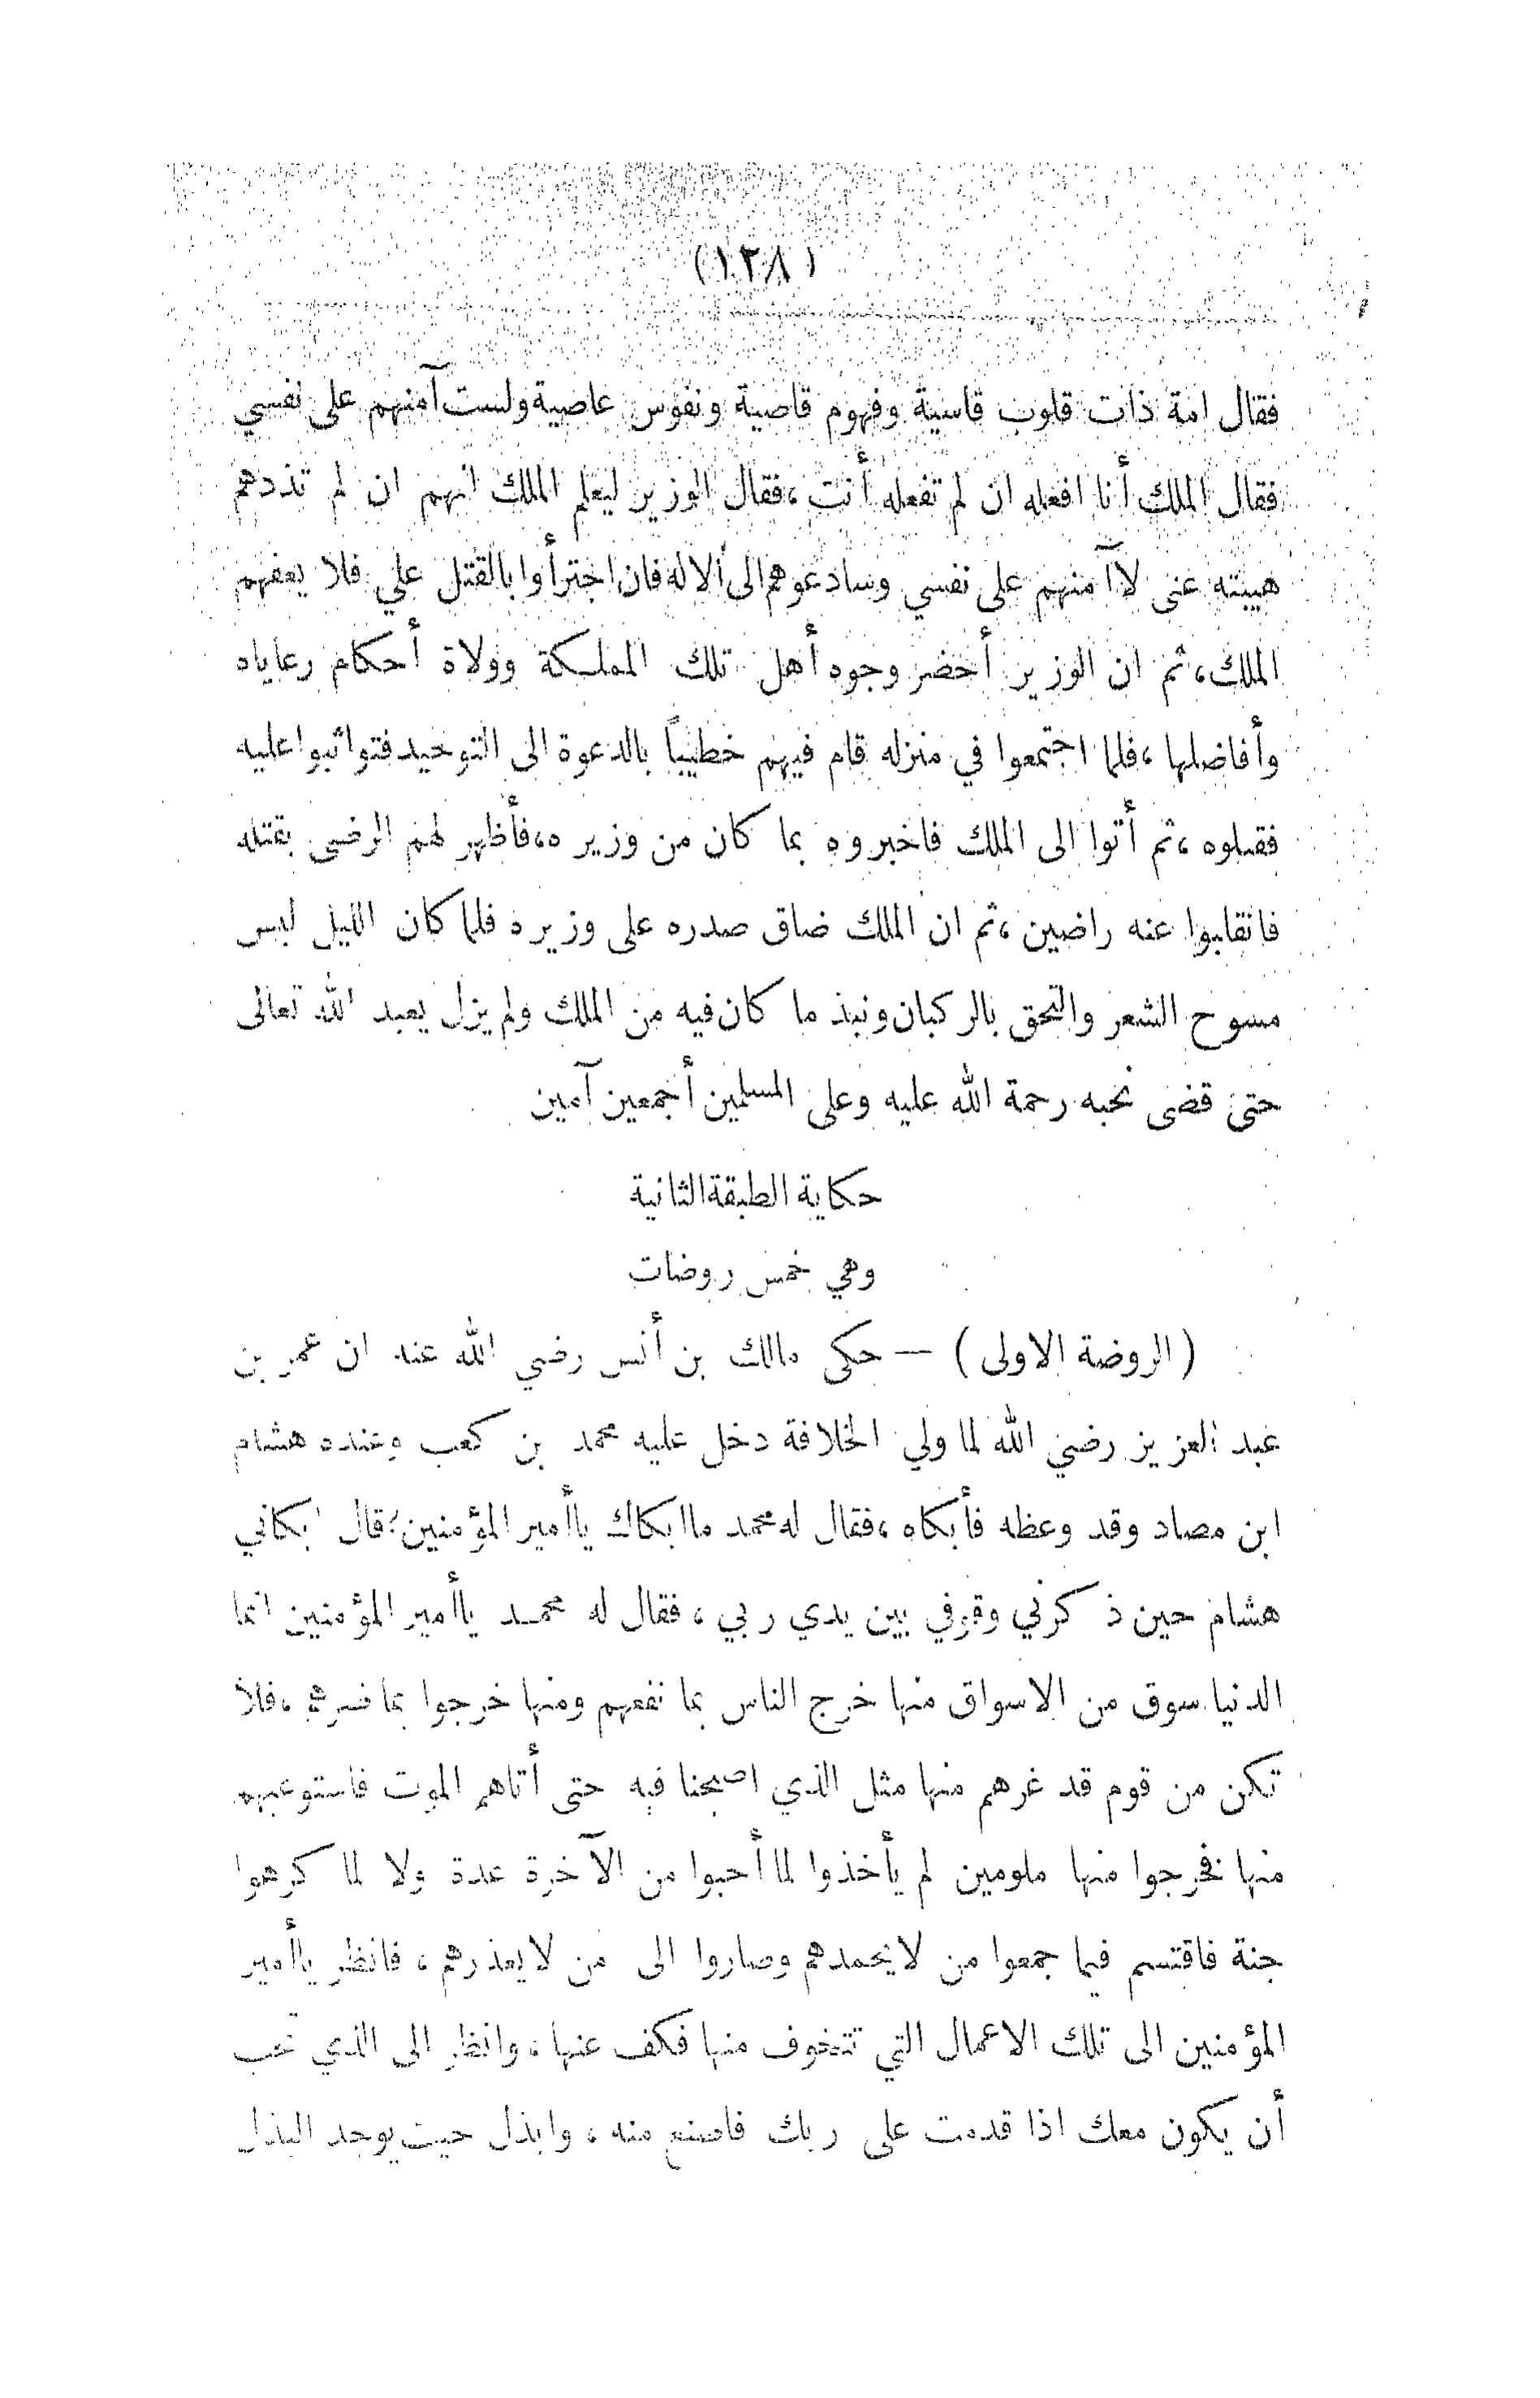 (١٢٨)
فقال امة ذات قلوب قاسية وفهوم قاصية ونفوس عاصية ولست آمنهم على نفسي
فقال الملك أنا افعله ان لم تفعله أنت ، فقال الوزير ليعلم الملك انهم ان لم تذدهم
هيبته عنى لاآمنهم على نفسي وسادعوهم الى ألاله فان اجترأوا بالقتل علي فلا يعفهم
الملك ، ثم ان الوزير أحضر وجوه أهل تلك المملكة وولاة أحكام رعاياه
وأفاضلها ، فلما اجتمعوا في منزله قام فيهم خطيباً بالدعوة الى التوحيد فتواثبوا عليه
فقتلوه ، ثم أتوا الى الملك فاخبروه بما كان من وزيره ، فأظهر لهم الرضى بقتله
فانقلبوا عنه راضين ، ثم ان الملك ضاق صدره على وزيره فلما كان الليل لبس
مسوح الشعر والتحق بالركبان ونبذ ما كان فيه من الملك ولم يزل يعبد الله تعالى
حتى قضى نحبه رحمة الله عليه وعلى المسلمين أجمعين آمين
حكاية الطبقة الثانية
وهي خمس روضات
( الروضة الاولى ) — حكى مالك بن أنس رضي الله عنه ان عمر بن
عبد العزيز رضي الله لما ولي الخلافة دخل عليه محمد بن كعب وعنده هشام
ابن مصاد وقد وعظه فأبكاه ، فقال له محمد ماابكاك ياأمير المؤمنين ؟ قال ابكاني
هشام حين ذكرني وقوفي بين يدي ربي ، فقال له محمد ياأمير المؤمنين انما
الدنيا سوق من الاسواق منها خرج الناس بما نفعهم ومنها خرجوا بما ضرهم ، فلا
تكن من قوم قد غرهم منها مثل الذي اصبحنا فيه حتى أتاهم الموت فاستوعبهم
منها فخرجوا منها ملومين لم يأخذوا لما أحبوا من الآخرة عدة ولا لما كرهوا
جنة فاقتسم فيما جمعوا من لايحمدهم وصاروا الى من لايعذرهم ، فانظر ياأمير
المؤمنين الى تلك الاعمال التي تتخوف منها فكف عنها ، وانظر الى الذي تحب
أن يكون معك اذا قدمت على ربك فاصنع منه ، وابذل حيث يوجد البذل